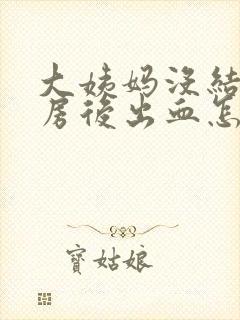 大姨妈没結
房後出血怎
寶姑娘